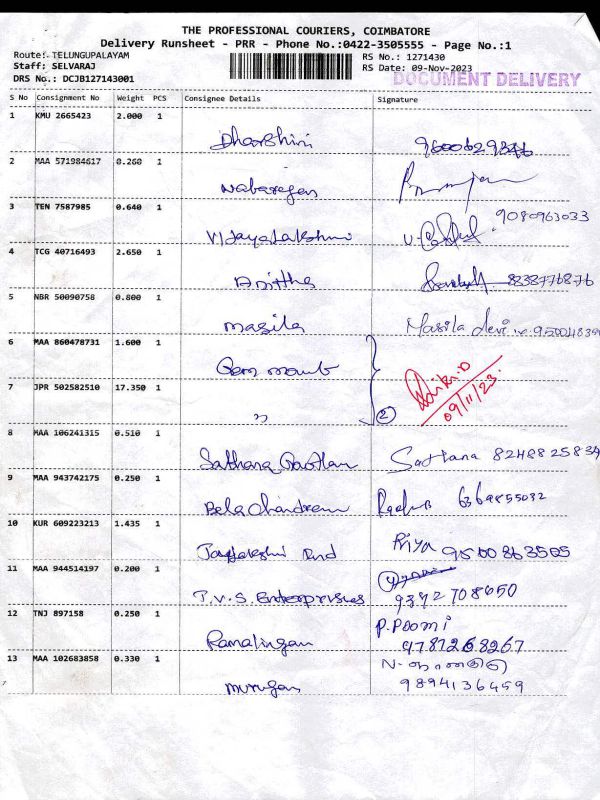 THE PROFESSIONAL COURIERS, COIMBATORE
Delivery Runsheet - PRR - Phone No.:0422-3505555 - Page No.:1
Route:- TELUNGUPALAYAM RS No.: 1271430
Staff: SELVARAJ RS Date: 09-Nov-2023
DRS No.: DCJB127143001 DOCUMENT DELIVERY
S No Consignment No Weight PCS Consignee Details Signature
1 KMU 2665423 2.000 1
Dharshini
2 MAA 571984617 0.260 1
Nabarajan
3 TEN 7587985 0.640 1 9080963033
Vijayalakshmi
4 TCG 40716493 2.650 1
Anitha 8838776876
5 NBR 50090758 0.800 1
Masila Masila devi
6 MAA 860478731 1.600 1
7 JPR 502582510 17.350 1
" 2 09/11/23
8 MAA 106241315 0.510 1
Sathana Sathana
9 MAA 943742175 0.250 1
6369855032
10 KUR 609223213 1.435 1
Priya 9500863505
11 MAA 944514197 0.200 1
T.V.S. Enterprises 9392708650
12 TNJ 897158 0.250 1 P.Poomi
Ramalingam 9787268267
13 MAA 102683858 0.330 1
Murugan 9894136459